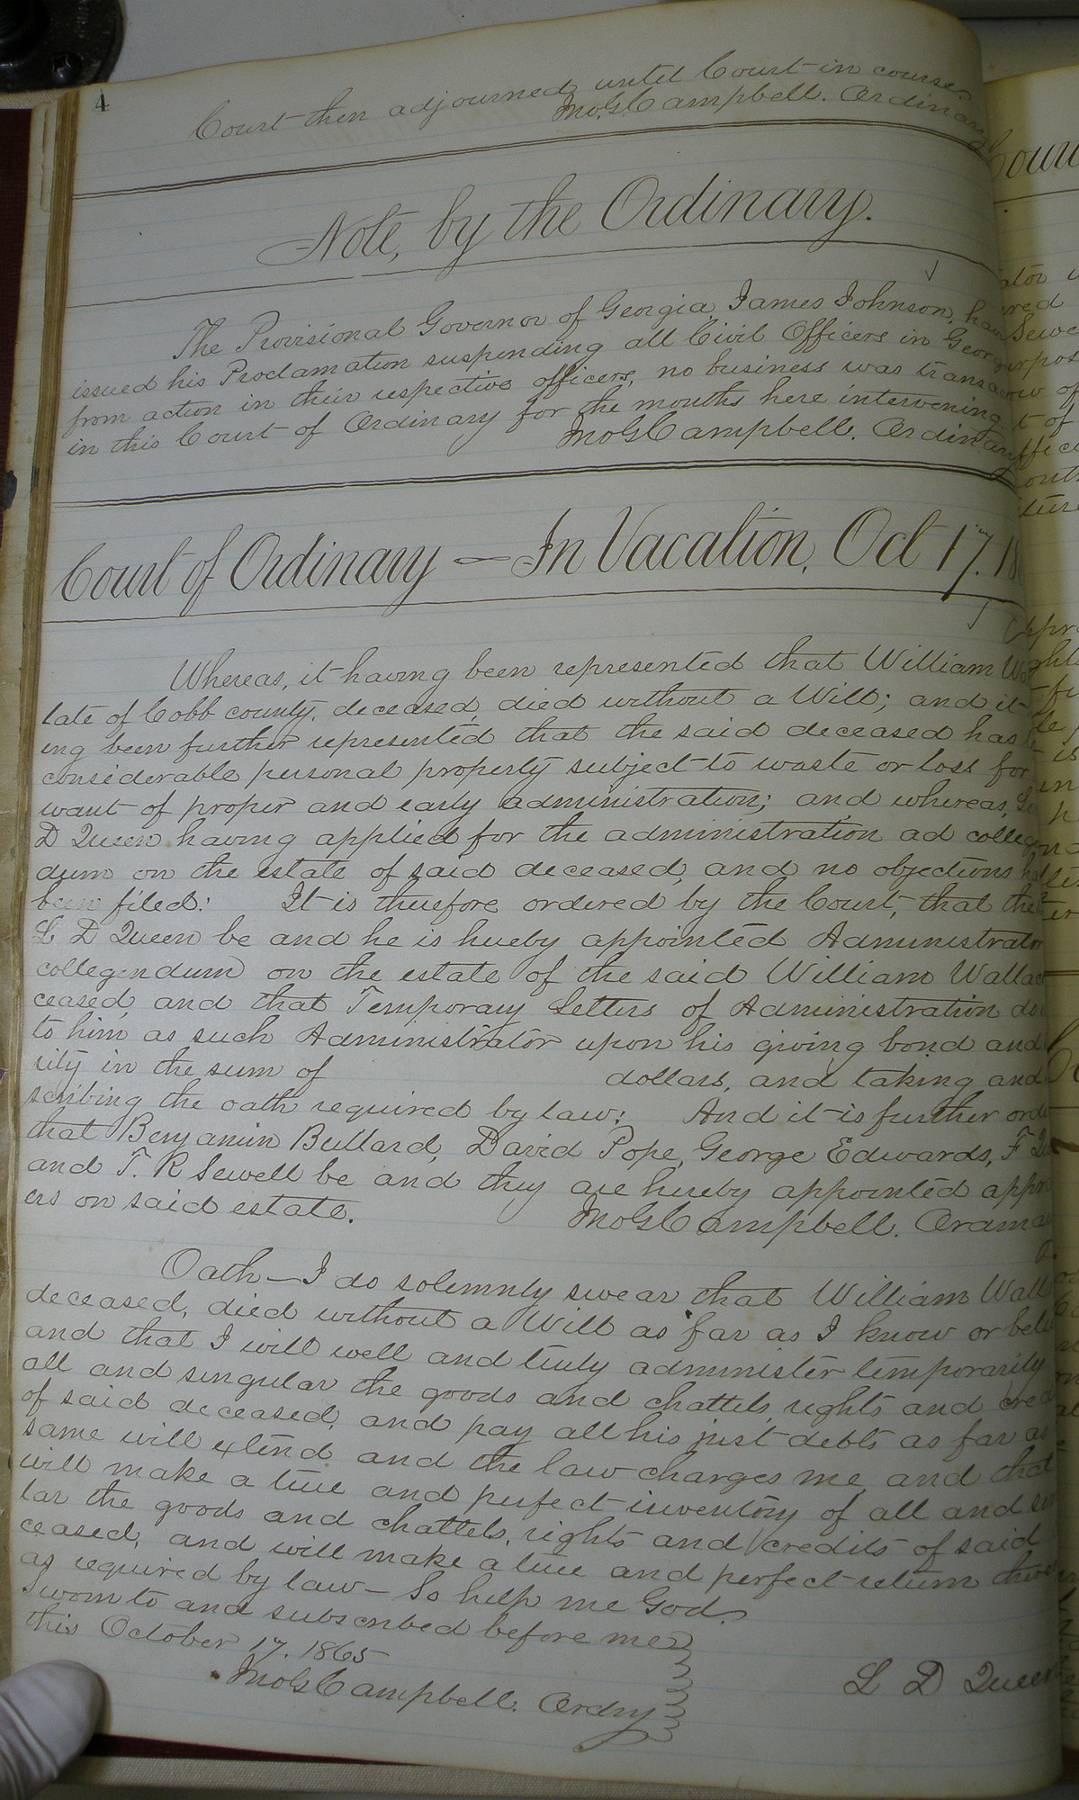 4
Court then adjourned until Court in course.
Jno. G. Campbell. Ordinary
Note, by the Ordinary.
The Provisional Governor of Georgia, James Johnson, hav
issued his Proclamation suspending all Civil Officers in Georg
from action in their respective officers, no business was transa
in this Court of Ordinary for the months here intervening
Jno G Campbell. Ordinary
Court of Ordinary — In Vacation, Oct 17. 18
Whereas, it having been represented that William Wa
late of Cobb county, deceased, died without a Will; and it
ing been further represented that the said deceased has
considerable personal property subject to waste or loss for
want of proper and early administration; and whereas,
D Queen having applied for the administration ad collegen
dum on the estate of said deceased, and no objections
been filed: It is therefore ordered by the Court, that the
L D Queen be and he is hereby appointed Administrator
collegendum on the estate of the said William Wallac
ceased, and that Temporary Letters of Administration do
to him as such Administrator upon his giving bond and
rity in the sum of dollars, and taking and
scribing the oath required by law: And it is further orde
that Benjamin Bullard, David Pope, George Edwards, F
and T. R Sewell be and they are hereby appointed appr
ers on said estate. Jno G Campbell. Ordinar
Oath — I do solemnly swear that William Wall
deceased, died without a Will as far as I know or beli
and that I will well and truly administer temporarily
all and singular the goods and chattels, rights and cred
of said deceased, and pay all his just debts as far as
same will extend and the law charges me, and that
will make a true and perfect inventory of all and sin
lar the goods and chattels, rights and credits of said
ceased, and will make a true and perfect return there
as required by law — So help me God.
Sworn to and subscribed before me
this October 17. 1865
Jno G Campbell. Ordry
L D Queen